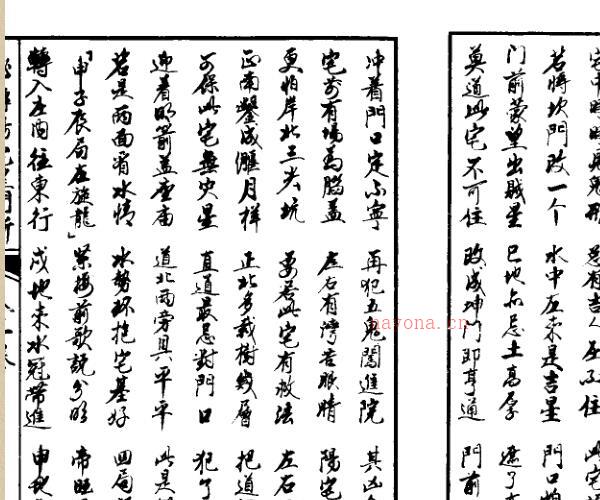 若將坎門改一个 水中原來是吉星 門口
門前蒙望出賊星 巳地尤忌土高厚 遮了
莫道此宅不可住 改成坤門即亨通 門前
沖着門口定不寧 再犯五鬼闖進院 其凶
宅前有塲為腦蓋 左右有灣若眼睛 陽宅
更怕岸北三尖坑 要若此宅有救法 左右
正南鑿成偃月樣 正北多栽樹幾層 把道
可保此宅無火星 直道最忌對門口 犯了
迎着明箭蓋座庙 道北兩旁具平平 此是
若是兩面有水情 水勢環抱宅基好 四局
「申子辰局左旋龍」 緊接前歌說分明 帝旺
轉入左間往東行 戌地未水冠帶進 申
nayona.cn